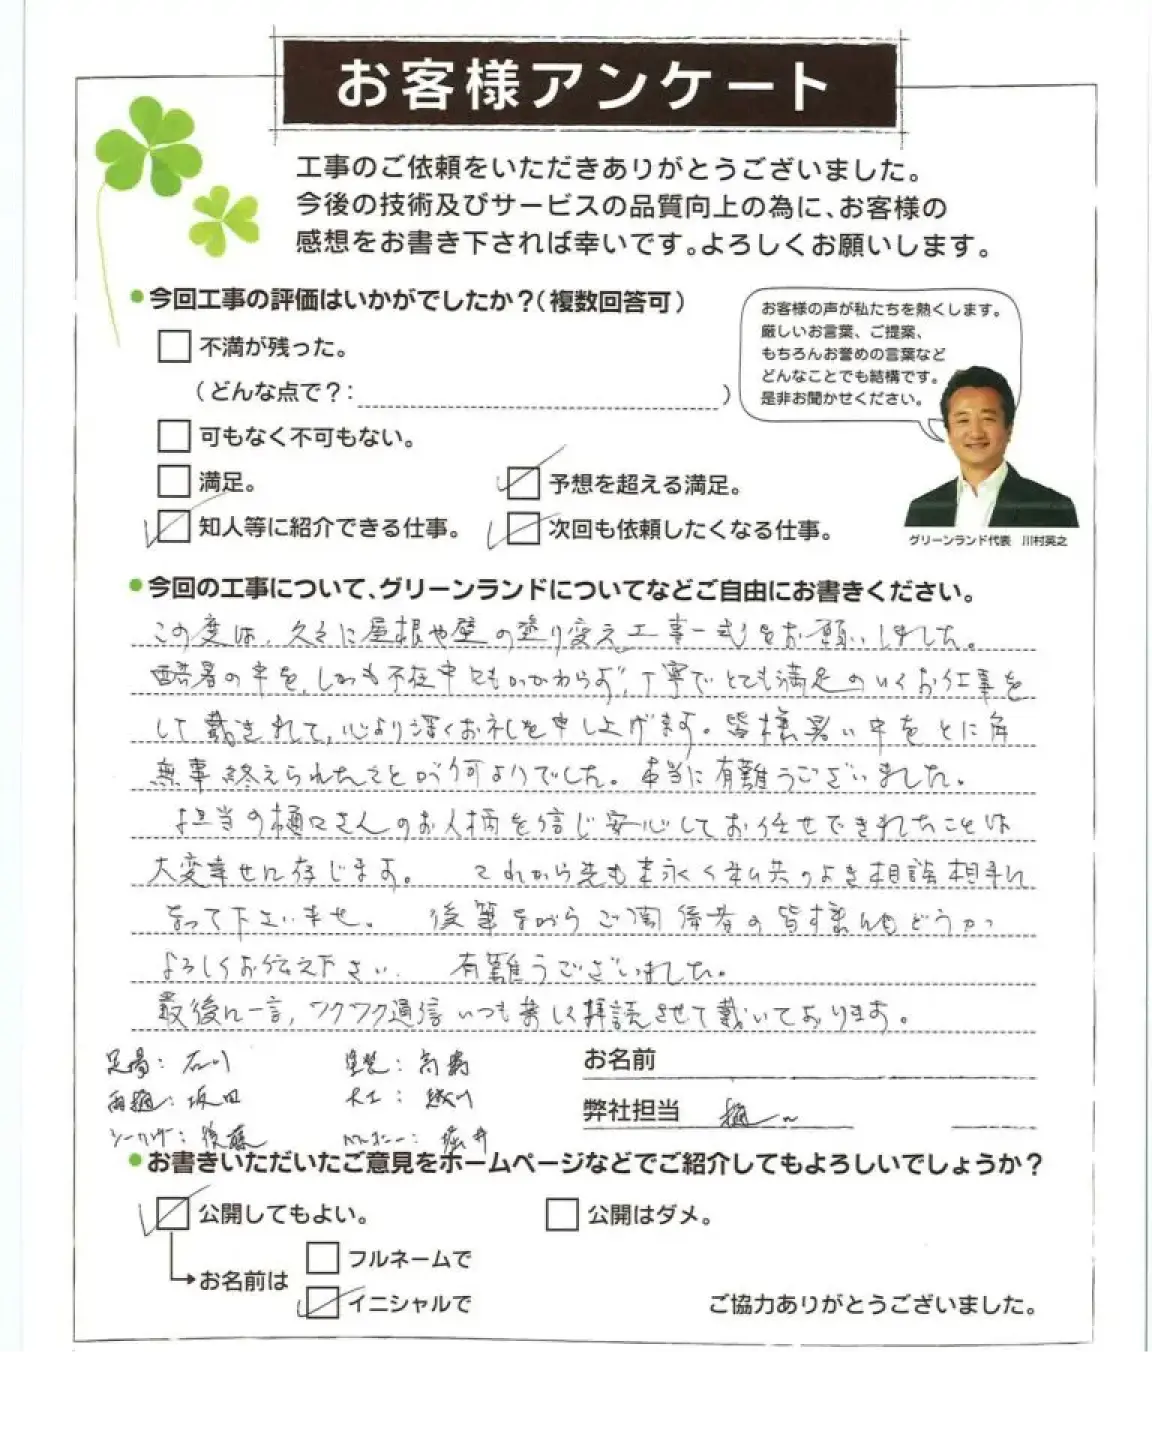 お客様アンケート
工事のご依頼をいただきありがとうございました。
今後の技術及びサービスの品質向上の為に、お客様の
感想をお書き下されば幸いです。よろしくお願いします。
今回工事の評価はいかがでしたか？（複数回答可）
お客様の声が私たちを熱くします。
厳しいお言葉、ご提案、
もちろんお誉めの言葉など
どんなことでも結構です。
是非お聞かせください。
不満が残った。
（どんな点で？: ）
可もなく不可もない。
満足。 予想を超える満足。
知人等に紹介できる仕事。 次回も依頼したくなる仕事。
グリーンランド代表 川村英之
今回の工事について、グリーンランドについてなどご自由にお書きください。
この度は、久々に屋根や壁の塗り変え工事一式をお願いしました。
酷暑の中を、しかも不在中にもかかわらず、丁寧でとても満足のいくお仕事を
して戴きまして、心より深くお礼を申し上げます。皆様暑い中をとに角
無事終えられたことが何よりでした。本当に有難うございました。
担当の樋口さんのお人柄を信じ安心してお任せできましたことは
大変幸せに存じます。 これから先も末永く私共のよき相談相手に
なって下さいませ。 後筆ながらご関係者の皆様にもどうかっ
よろしくお伝え下さい。 有難うございました。
最後に一言、ワクワク通信いつも楽しく拝読させて戴いております。
足場: 石川 塗装: 高橋 お名前
雨樋: 坂田 大工: 弊社担当 樋口
後藤 堀井
お書きいただいたご意見をホームページなどでご紹介してもよろしいでしょうか？
公開してもよい。 公開はダメ。
フルネームで
お名前は
イニシャルで
ご協力ありがとうございました。